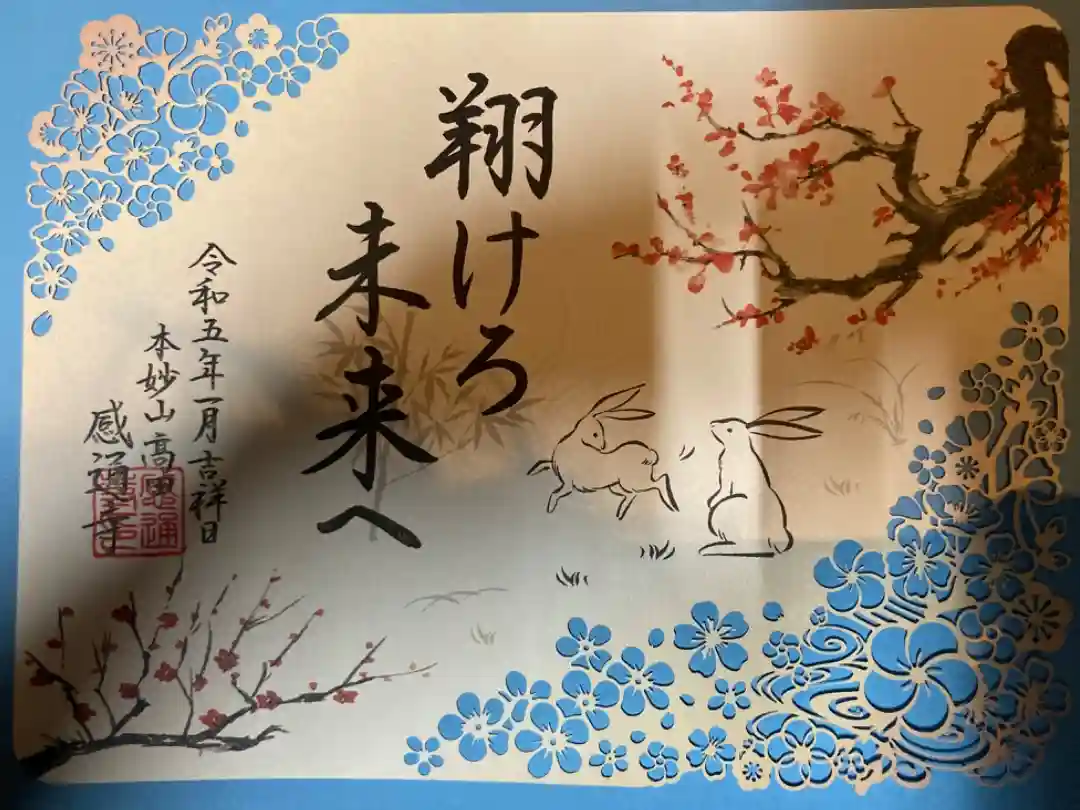 翔けろ
未来へ
令和五年一月吉祥日
本妙山高田
感通寺